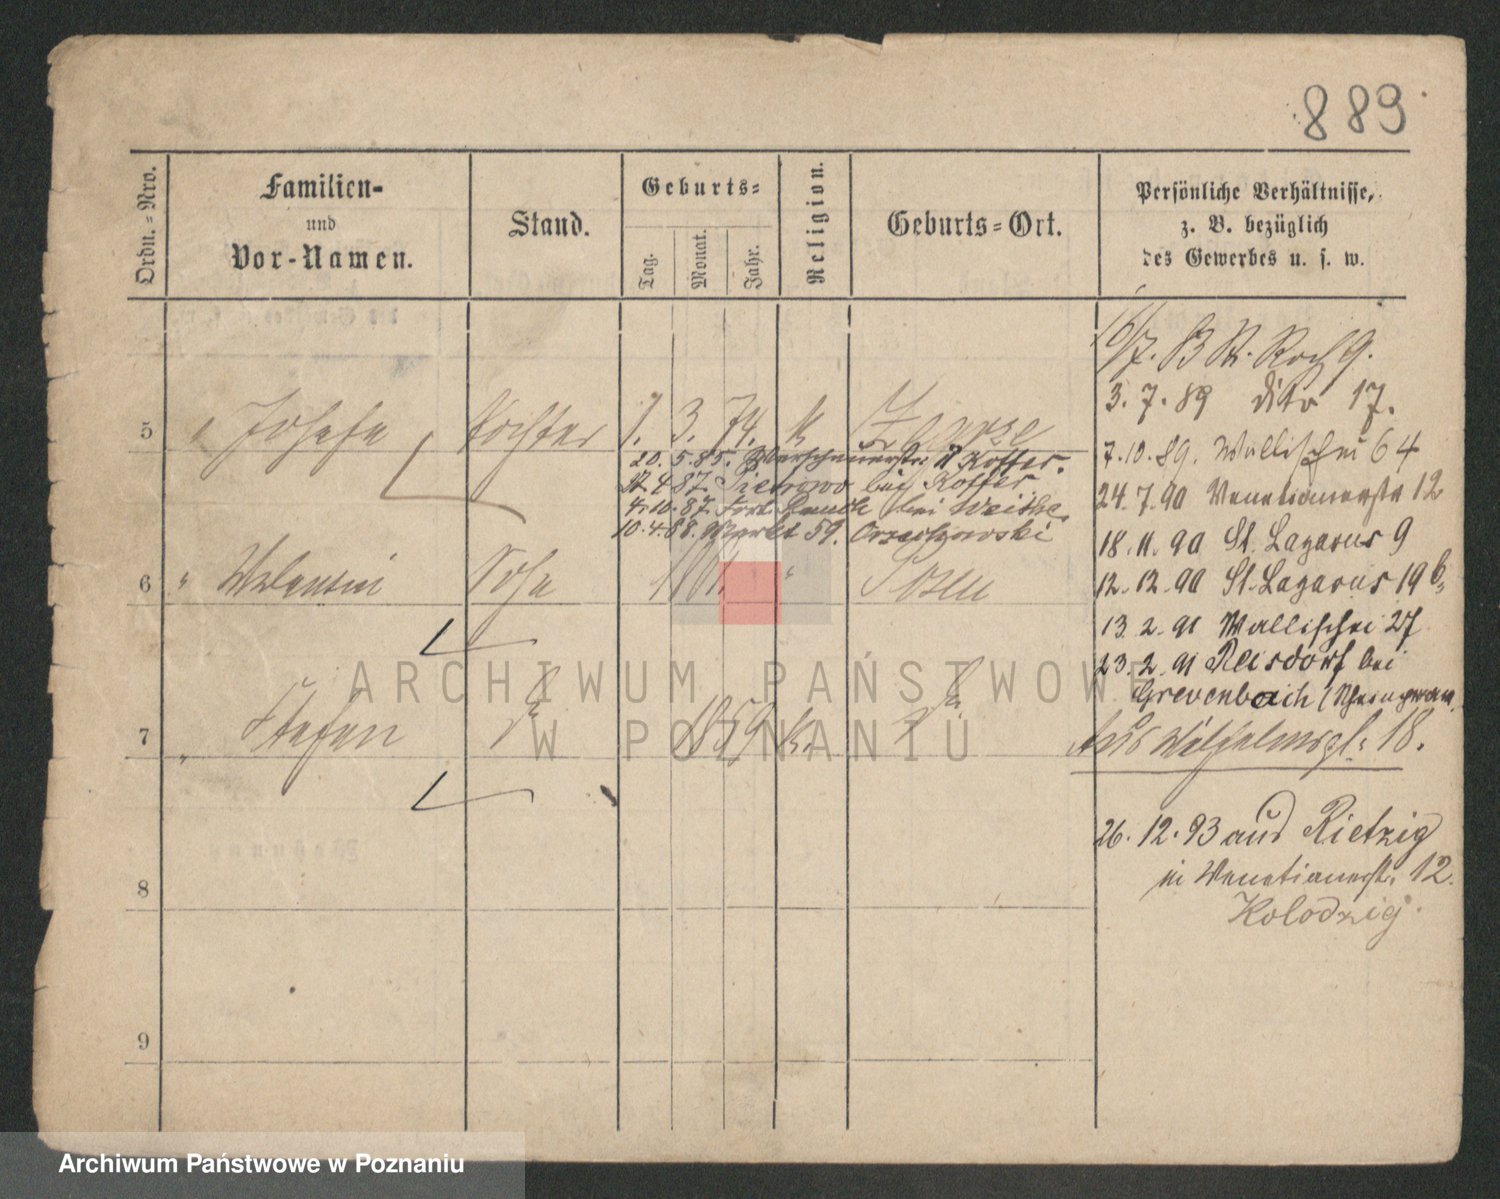 889
Ordn.=Nro.
Familien-
und
Vor-Namen.
Stand.
Geburts=
Tag.
Monat.
Jahr.
Religion.
Geburts=Ort.
Persönliche Verhältnisse,
z. B. bezüglich
des Gewerbes u. s. w.
16/7. 83 St. Roch 9.
3. 7. 89 dito 17.
5 " Josefa Tochter 1. 3. 74. k
7. 10. 89. Wallischei 64
20. 5. 85. Warscheuerstr. bei Koffer.
4. 87. Pietrowo bei Koffer
24. 7. 90 Venetianerstr 12
4. 10. 87. Fort Rauch bei Weithe
10. 4. 88. Markt 59. Orzechowski
18. 11. 90 St. Lazarus 9
6 " Valentin Sohn " Posen
12. 12. 90 St. Lazarus 19 b,
13. 2. 91 Wallischei 27
23. 2. 91 Reisdorf bei
Grevenbroich
7 " Stefan 1859 k.
Aus Wilhelmspl. 18.
26. 12. 93 aus Rietzig
in Venetianerstr. 12.
8
Kolodzig.
9
ARCHIWUM PAŃSTWOWE
W POZNANIU
Archiwum Państwowe w Poznaniu